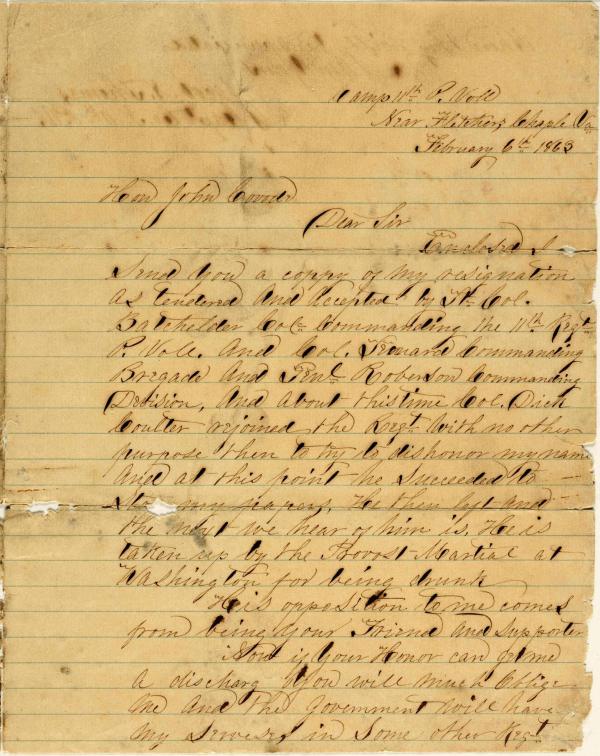 Camp 11th P. Voll
Near Fletchers Chaple Va
February 6th 1863
Hon John Covode
Dear Sir
Enclosed I
Send you a coppy of my resignation
as tendered And Accepted by Lt. Col.
Batchelder Col. Commanding the 11th Regt
P. Voll. And Col. Commanding
Bregade And Genl. Roberson Commanding
Devision, And About this time Col. Dick
Coulter rejoined the Regt. With no other
purpose then to try to dishonor my name
And at this point he Succeeded to
my papers, He then left And
the next we hear of him is, He is
taken up by the Provost-Martial at
Washington for being drunk
His opposition to me comes
from being Your Friend And Supporter
Now if Your Honor can get me
a discharg You will much Oblige
Me And The Government Will have
My Serveses in Some other Regt